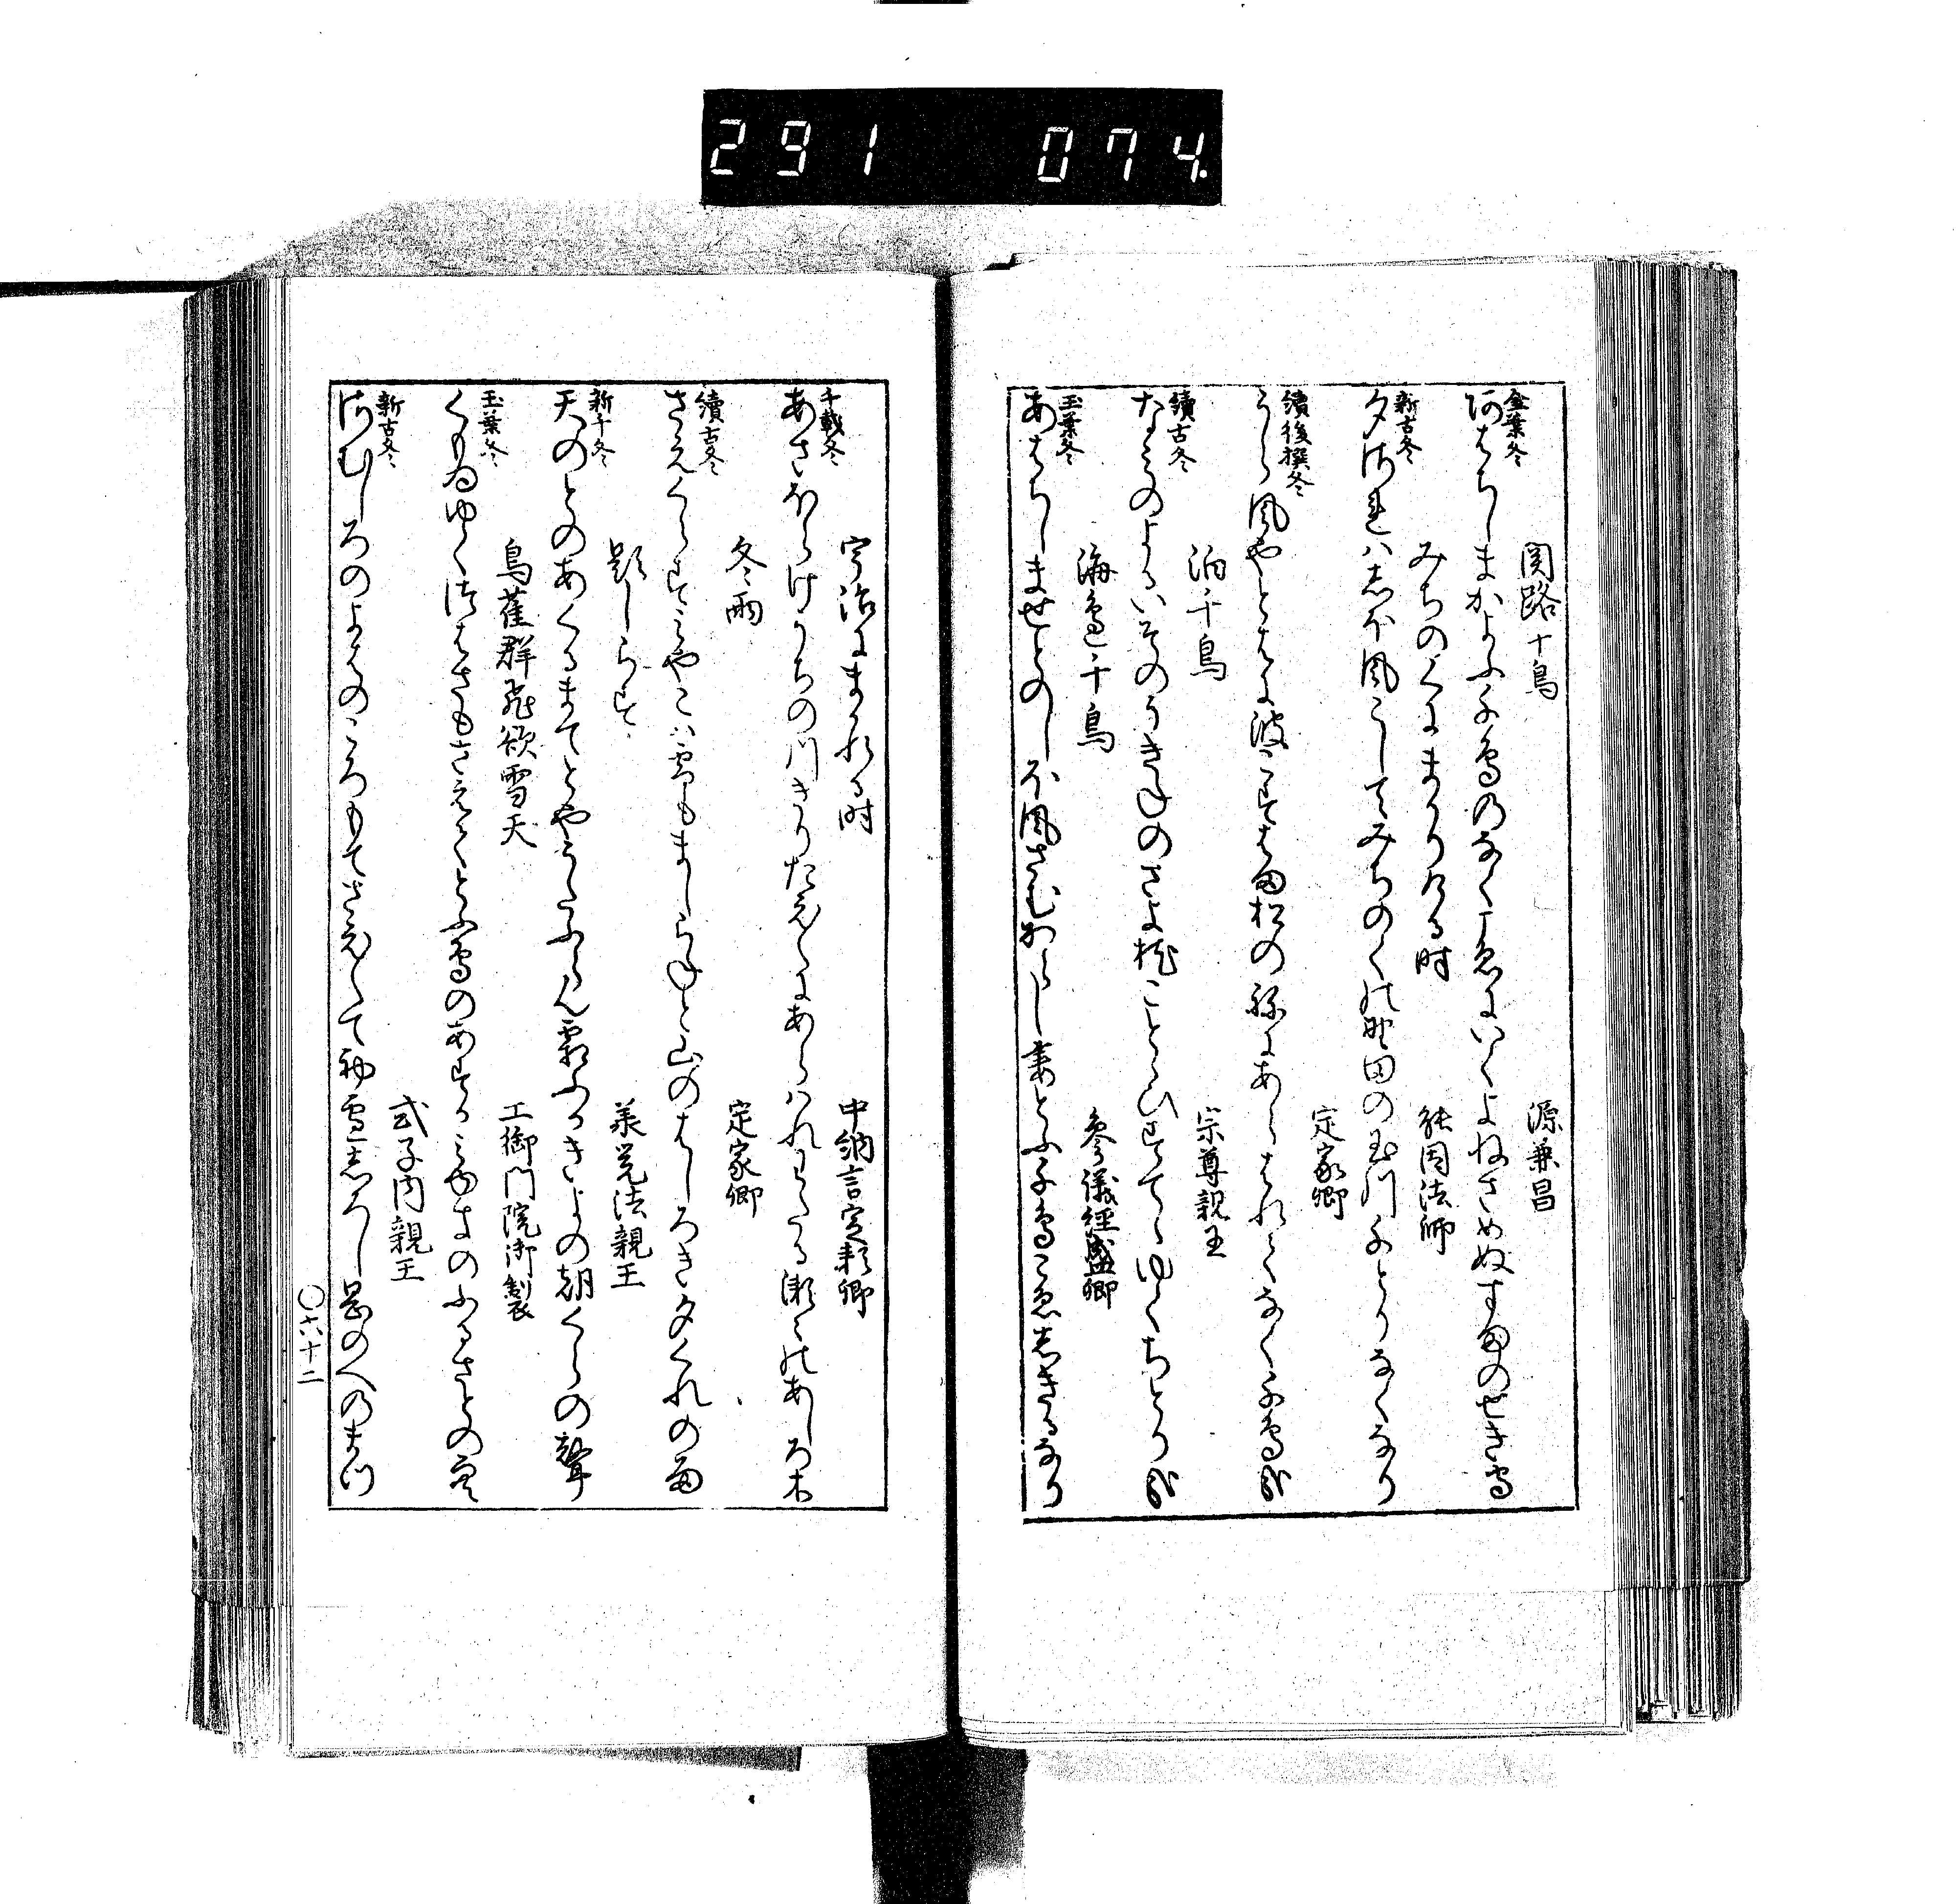 291 074.
関路千鳥 源兼昌
金葉冬
あはちしまかよふ千鳥のなく声にいくよねさめぬすまのせき守
みちのくにまかりける時 能因法師
新古冬
夕されはしほ風こしてみちのくの野田の玉川千とりなくなり
定家卿
續後撰冬
うら風やとはに波こすはま松のねにあらはれてなく千鳥哉
泊千鳥 宗尊親王
續古冬
なみのよるいそのうきねのさよ枕ことゝひすてゝゆくちとり哉
海邊千鳥 参議経盛卿
玉葉冬
あはちしませとのしほ風さむからし妻とふ千鳥こゑしきるなり
宇治にまかれる時 中納言定頼卿
千載冬
あさほらけうちの川きりたえ〱にあらはれわたる瀬々のあしろ木
冬雨 定家卿
續古冬
さえくらすみやこは雪もましらねと山のはしろき夕くれの雨
題しらす 承覚法親王
新千冬
天のとのあくるまてとやうたふらん霜ふかきよの朝くらの聲
鳥雀群飛欲雪天 土御門院御製
玉葉冬
くもゐゆくつはさもさえてとふ鳥のあすかみゆきのふるさとの空
式子内親王
新古冬
さむしろのよはのころもてさえ〱て初雪しろし岡のへのまつ
〇六十二